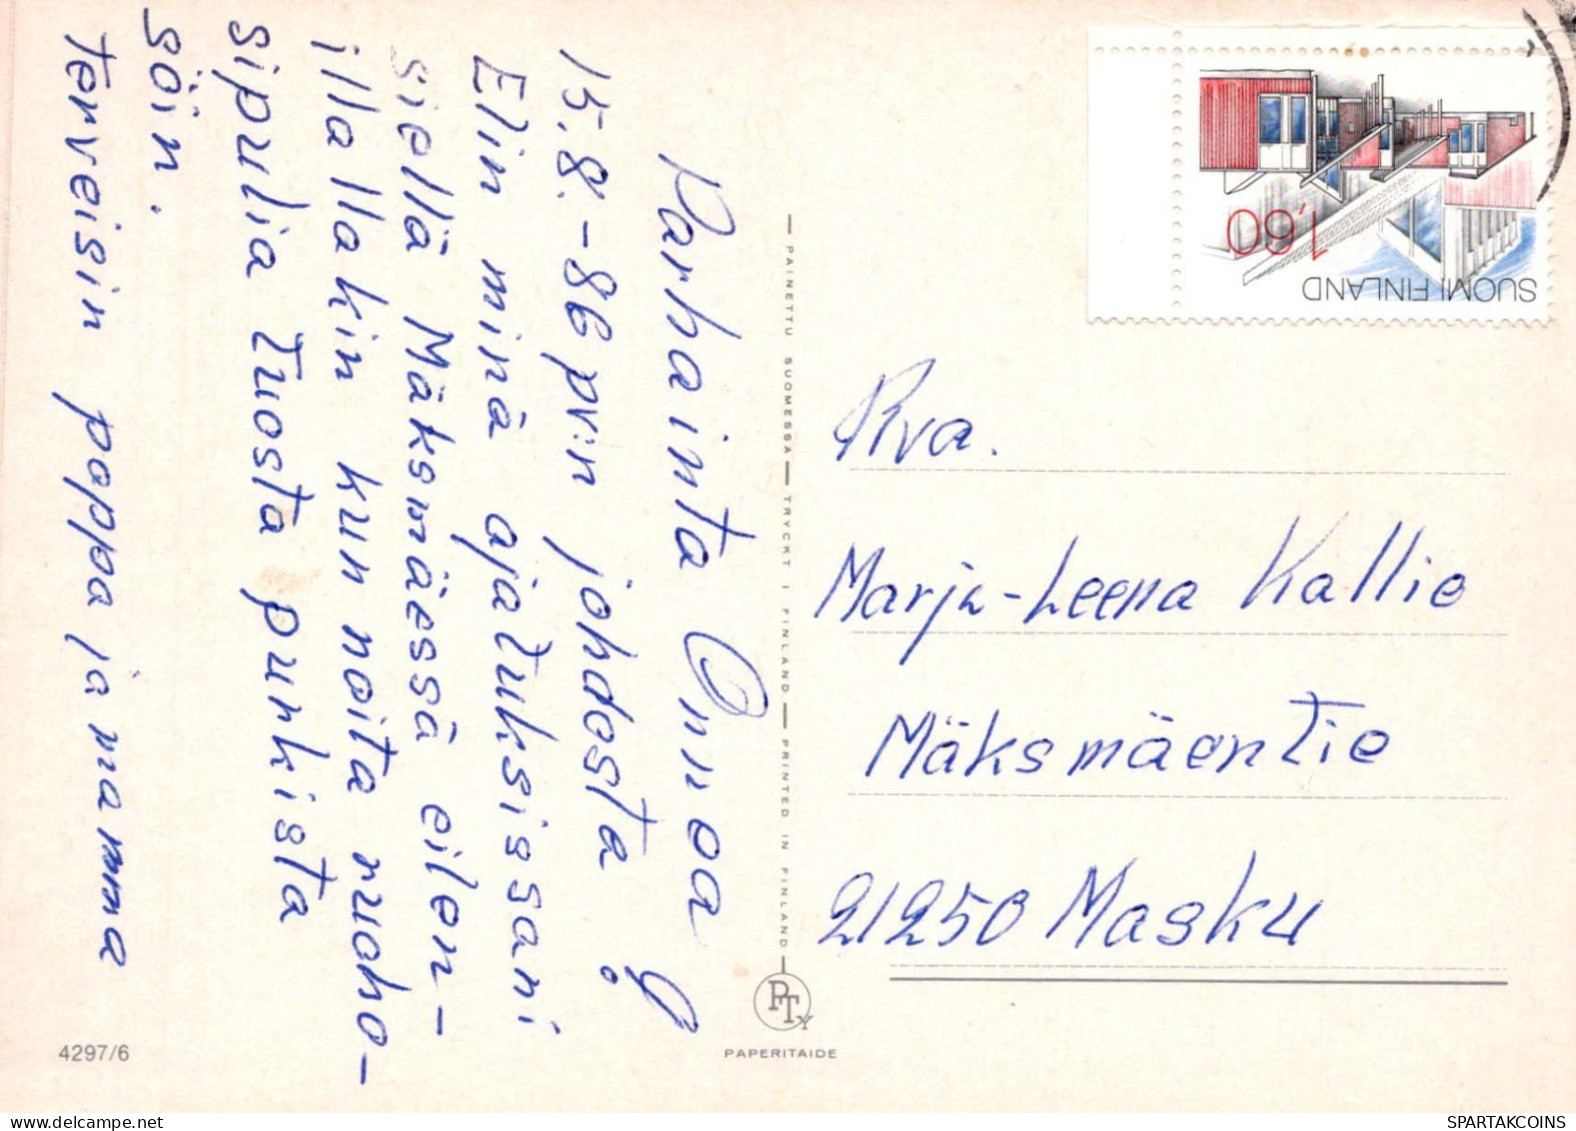 Parhainta Onnoa
15.8.-86 pv:n johdosta !
Elin minä ajatuksissani
siellä Mäksmäessä eilen-
illallakin kun noita ruoho-
sipulia tuosta purkista
söin.
Terveisin pappa ja mamma
4297/6
PAINETTU SUOMESSA — TRYCKT I FINLAND — PRINTED IN FINLAND
PTY
PAPERITAIDE
SUOMI FINLAND
1,60
Rva.
Marja-Leena Kallio
Mäksmäentie
21250 Masku
SPARTAKCOINS